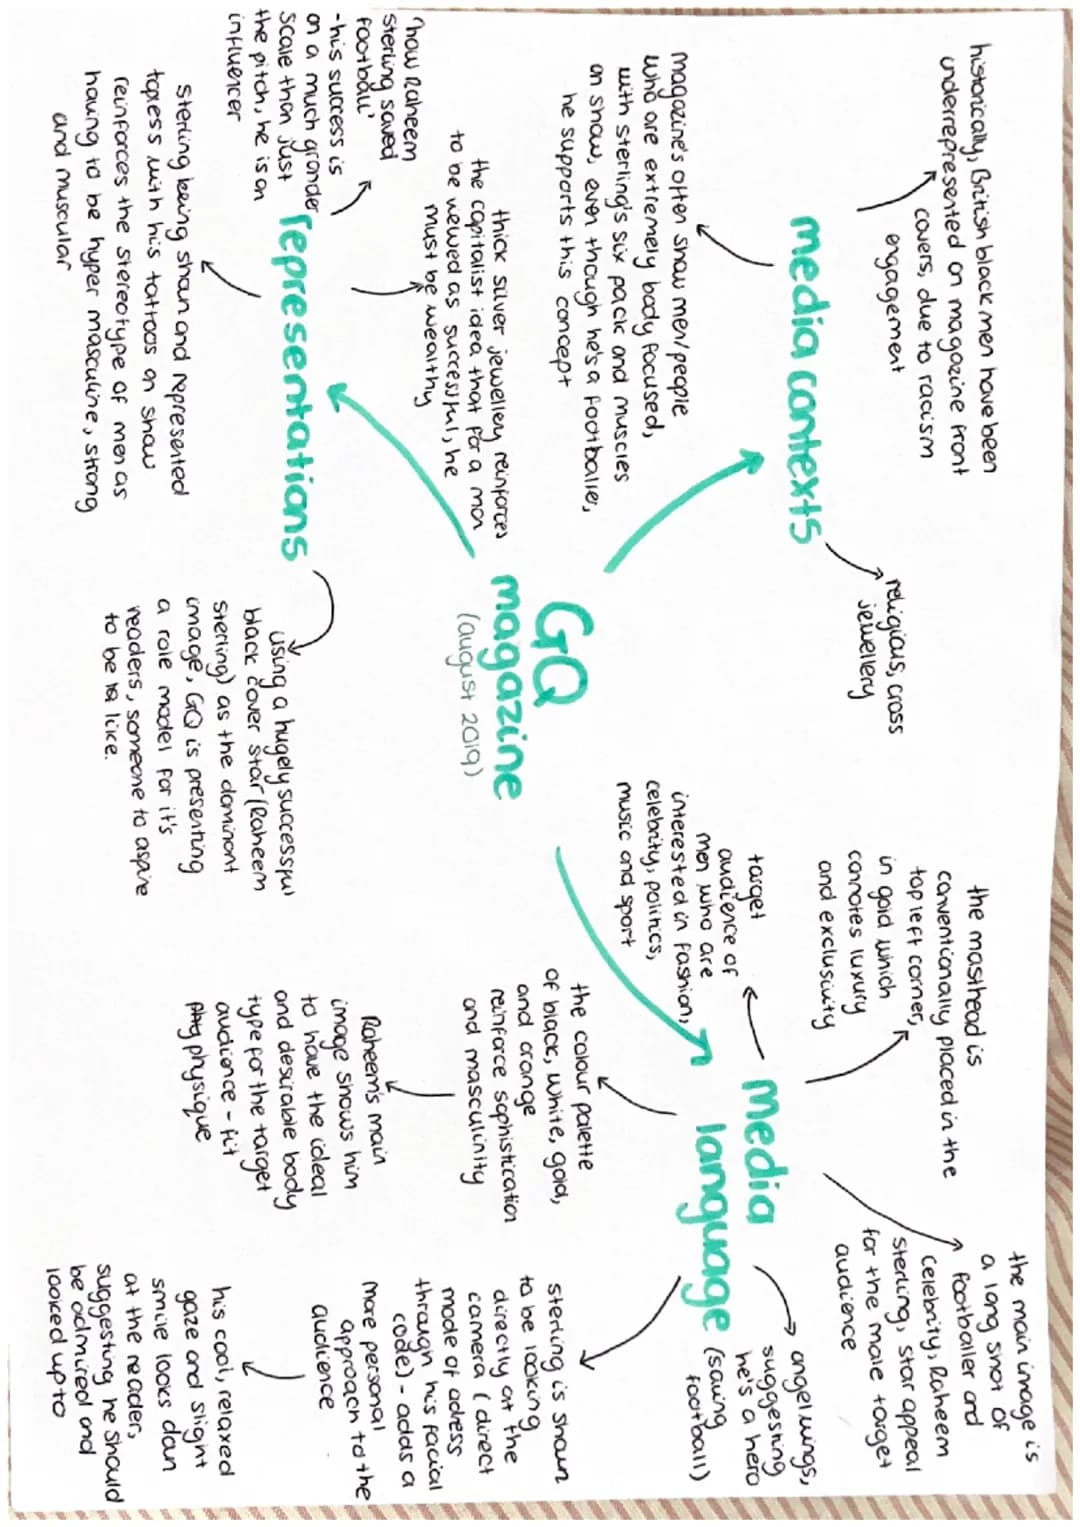 GQ
magazine
(august 2019)
media contexts
historically, British black men have been
underrepresented on magazine front
covers, due to racism
engagement
religious, cross
jewellery
magazine's often show men/people
who are extremely body focused,
with sterling's six pack and muscles
on show, even though he's a footballer,
he supports this concept
representations
'how Raheem
sterling saved
football'
-his success is
on a much grander
scale than just
the pitch, he is an
influencer
thick silver jewellery reinforces
the capitalist idea that for a man
to be viewed as successful, he
must be wealthy
sterling being shown and represented
topless with his tattoos on show
reinforces the stereotype of men as
having to be hyper masculine, strong
and muscular
using a hugely successful
black cover star (Raheem
sterling) as the dominant
image, GQ is presenting
a role model for it's
readers, someone to aspire
to be like.
Media
language
the masthead is
conventionally placed in the
top left corner,
in gold which
connotes luxury
and exclusivity
the main image is
a long shot of
footballer and
celebrity, Raheem
sterling, star appeal
for the male target
audience
target
audience of
men who are
interested in fashion,
celebrity, politics,
music and sport
angel wings,
suggesting
he's a hero
(saving
football)
the colour palette
of black, white, gold,
and orange
reinforce sophistication
and masculinity
Raheem's main
image shows him
to have the ideal
and desirable body
type for the target
audience - fit
physique
sterling is shown
to be looking
directly at the
camera (direct
mode of adress
through his facial
code) - adds a
more personal
approach to the
audience
his cool, relaxed
gaze and slight
smile looks down
at the reader,
suggesting he should
be admired and
looked up to